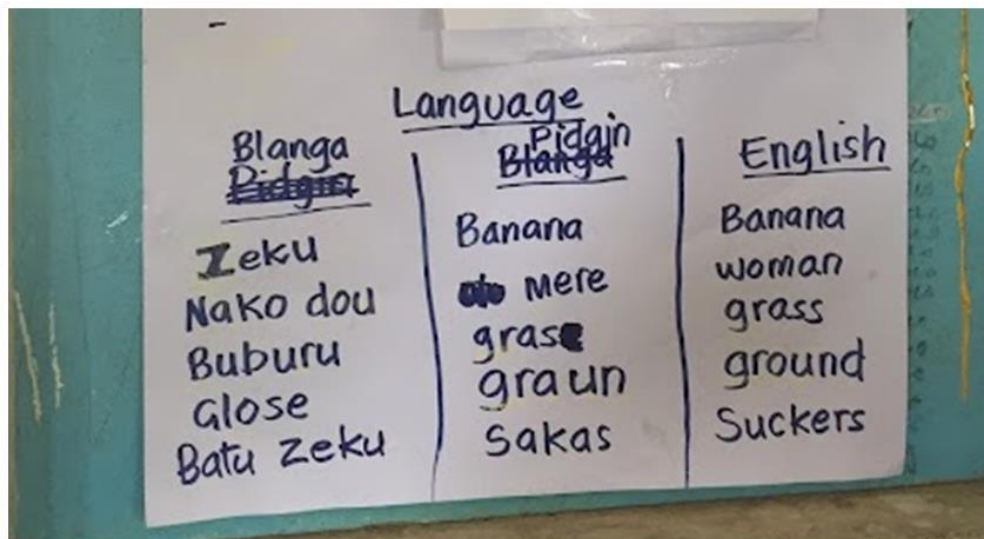 Language
Blanga Pidgin English
Zeku Banana Banana
Nako dou mere woman
Buburu gras grass
Glose graun ground
Batu zeku Sakas Suckers